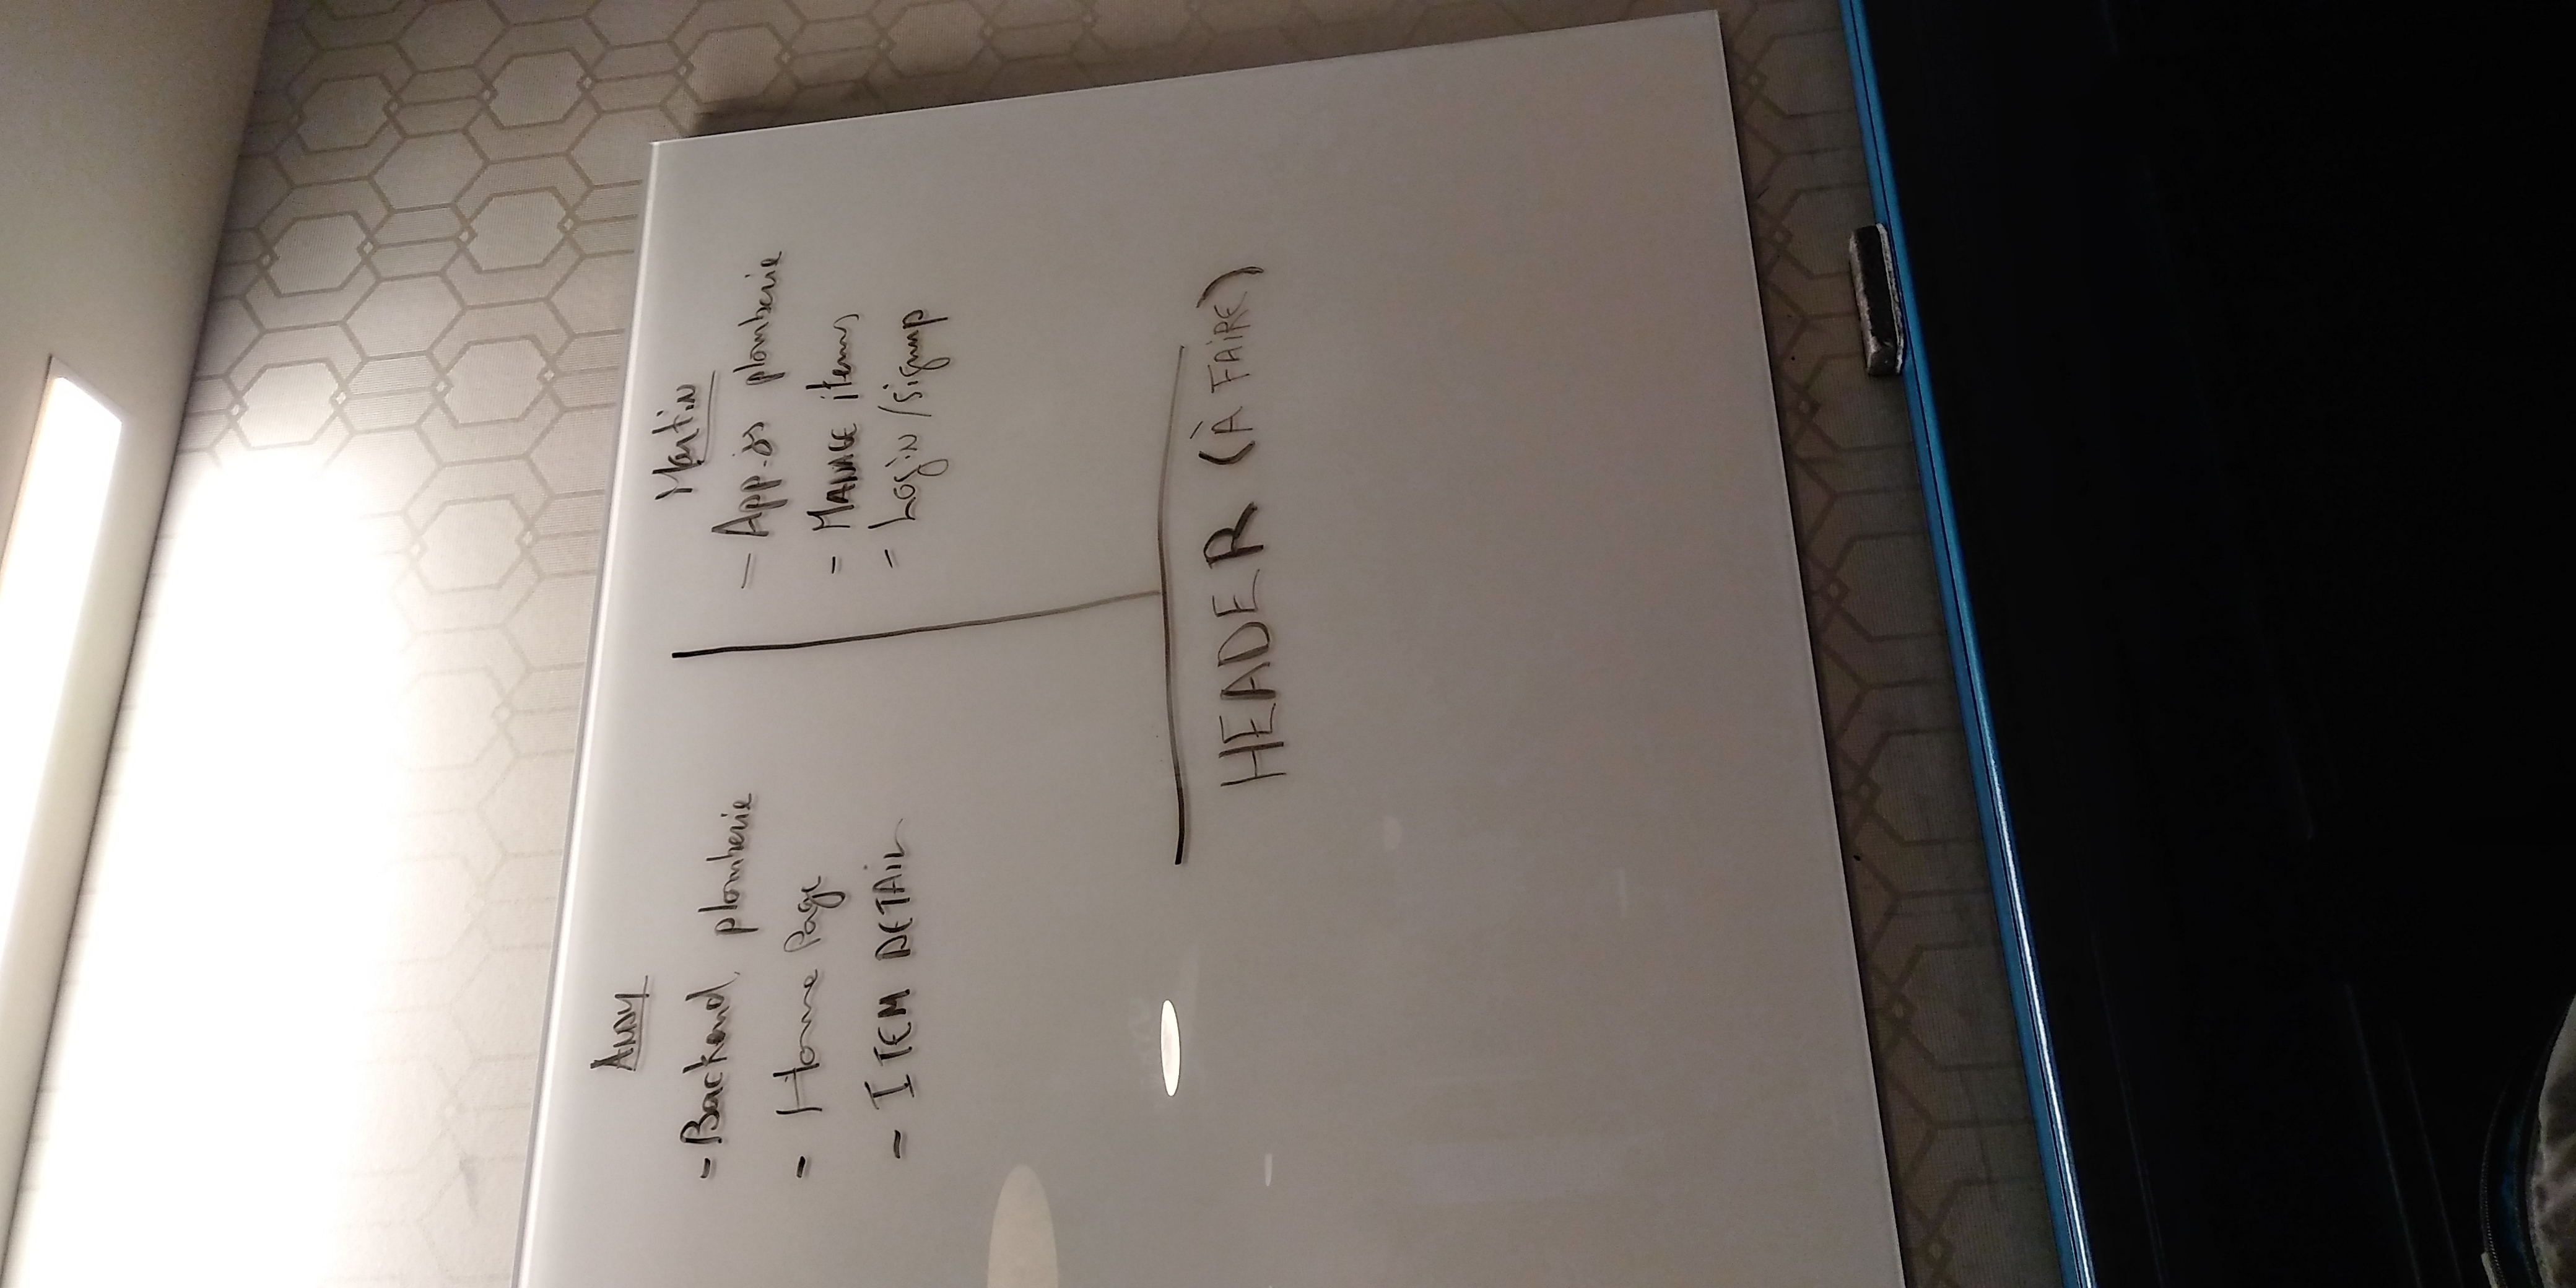 Andy
- Backend plomberie
- Home Page
- ITEM DETAIL
Martin
- App.js plomberie
- MANAGE items
- Login/signup
HEADER (À FAIRE)